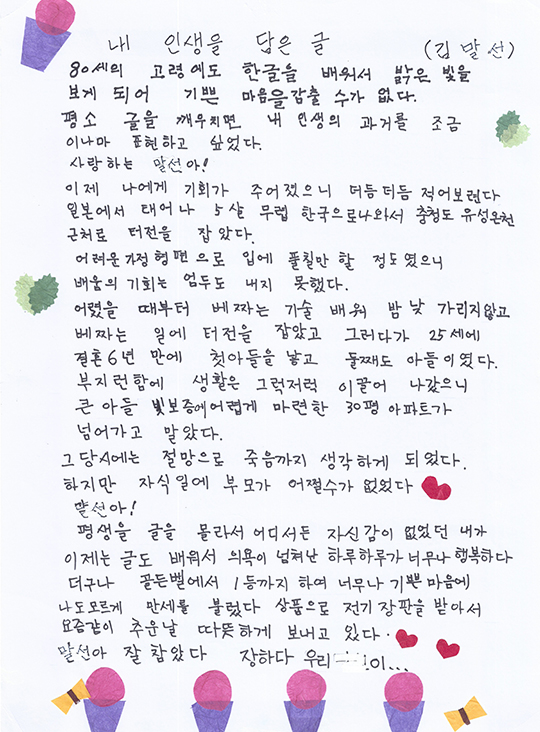 내 인생을 담은 글 (김말선)
80세의 고령에도 한글을 배워서 밝은 빛을
보게 되어 기쁜 마음을 감출 수가 없다.
평소 글을 깨우치면 내 인생의 과거를 조금
이나마 표현하고 싶었다.
사랑하는 말선아!
이제 나에게 기회가 주어졌으니 더듬더듬 적어보련다
일본에서 태어나 5살 무렵 한국으로나와서 충청도 유성온천
근처로 터전을 잡았다.
어려운 가정 형편으로 입에 풀칠만 할 정도였으니
배움의 기회는 엄두도 내지 못했다.
어렸을 때부터 베짜는 기술 배워 밤낮 가리지않고
베짜는 일에 터전을 잡았고 그러다가 25세에
결혼6년 만에 첫아들을 낳고 둘째도 아들이였다.
부지런함에 생활은 그럭저럭 이끌어 나갔으니
큰 아들 빛보증에어렵게 마련한 30평 아파트가
넘어가고 말았다.
그 당시에는 절망으로 죽음까지 생각하게 되었다.
하지만 자식일에 부모가 어쩔수가 없었다
말선아!
평생을 글을 몰라서 어디서든 자신감이 없었던 내가
이제는 글도 배워서 의욕이 넘쳐난 하루하루가 너무나 행복하다
더구나 골든벨에서 1등까지 하여 너무나 기쁜 마음에
나도모르게 만세를 불렀다 상품으로 전기장판을 받아서
요즘같이 추운날 따뜻하게 보내고 있다.
말선아 잘 참았다 장하다 우리 이...